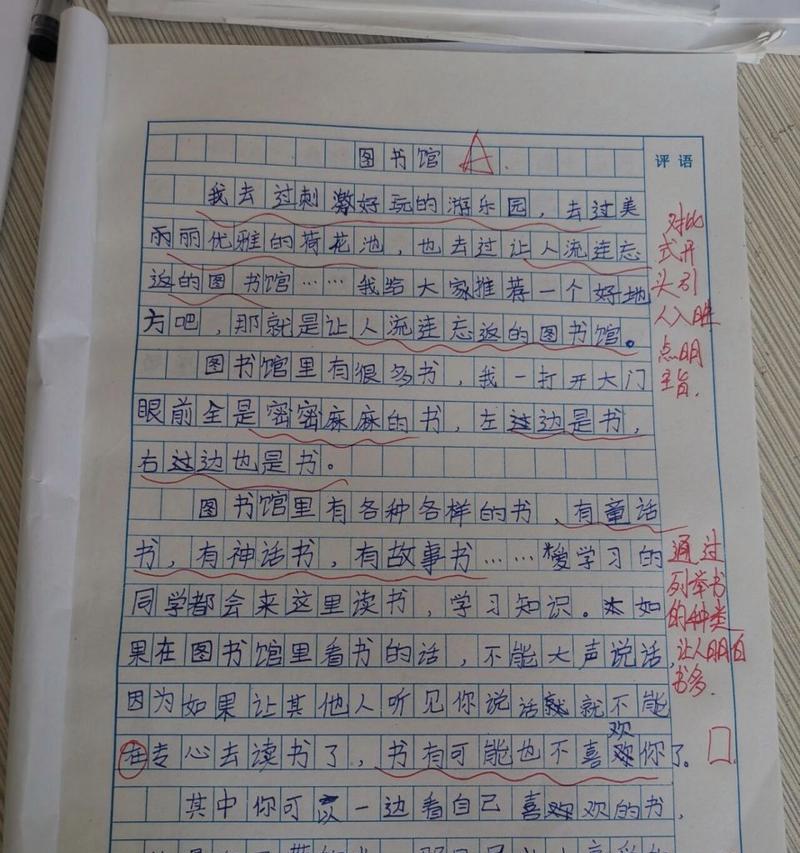 图书馆 A
评语
我去过刺激好玩的游乐园，去过美
丽丽优雅的荷花池，也去过让人流连忘
返的图书馆……我给大家推荐一个好地
方吧，那就是让人流连忘返的图书馆。
对比
式开
头引
人入胜
点明
主旨.
图书馆里有很多书，我一打开大门
眼前全是密密麻麻的书，左这边是书，
右这边也是书。
图书馆里有各种各样的书、有童话
书，有神话书，有故事书……爱学习的
同学都会来这里读书，学习知识。如
果在图书馆里看书的话，不能大声说话，
因为如果让其他人听见你说话就就不能
在专心去读书了，书有可能也不喜欢你了。
通过
列举书
的种类
让人明白
书多.
其中你可以一边看自己喜欢欢的书，